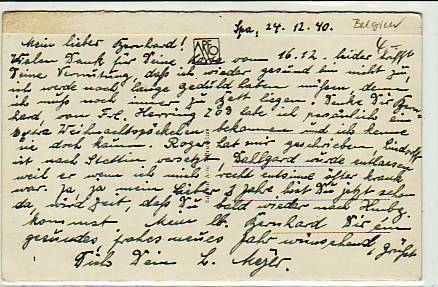 Spa, 24.12.40.
Belgien
Mein lieber Bernhard!
Vielen Dank für Deine Karte vom 16.12., leider trifft
Deine Vermutung, daß ich wieder gesund bin nicht zu,
ich werde noch lange Geduld haben müssen, denn
ich muß noch immer zu Bett liegen. Danke Dir Bern-
hard, von Frl. Herring habe ich persönlich ein
Weihnachtspäckchen bekommen und ich kenne
sie doch kaum. Roger hat mir geschrieben,
ist nach Stettin versetzt, Dallgard würde entlassen
weil er wenn ich mich recht entsinne öfter krank
war. Ja ja mein Lieber 3 Jahre bist Du jetzt schon
da, wird Zeit, daß Du bald wieder nach Hmbg.
kommst. Mein lb. Bernhard Dir ein
gesundes, frohes neues Jahr wünschend, grüßt
Dich Dein L.